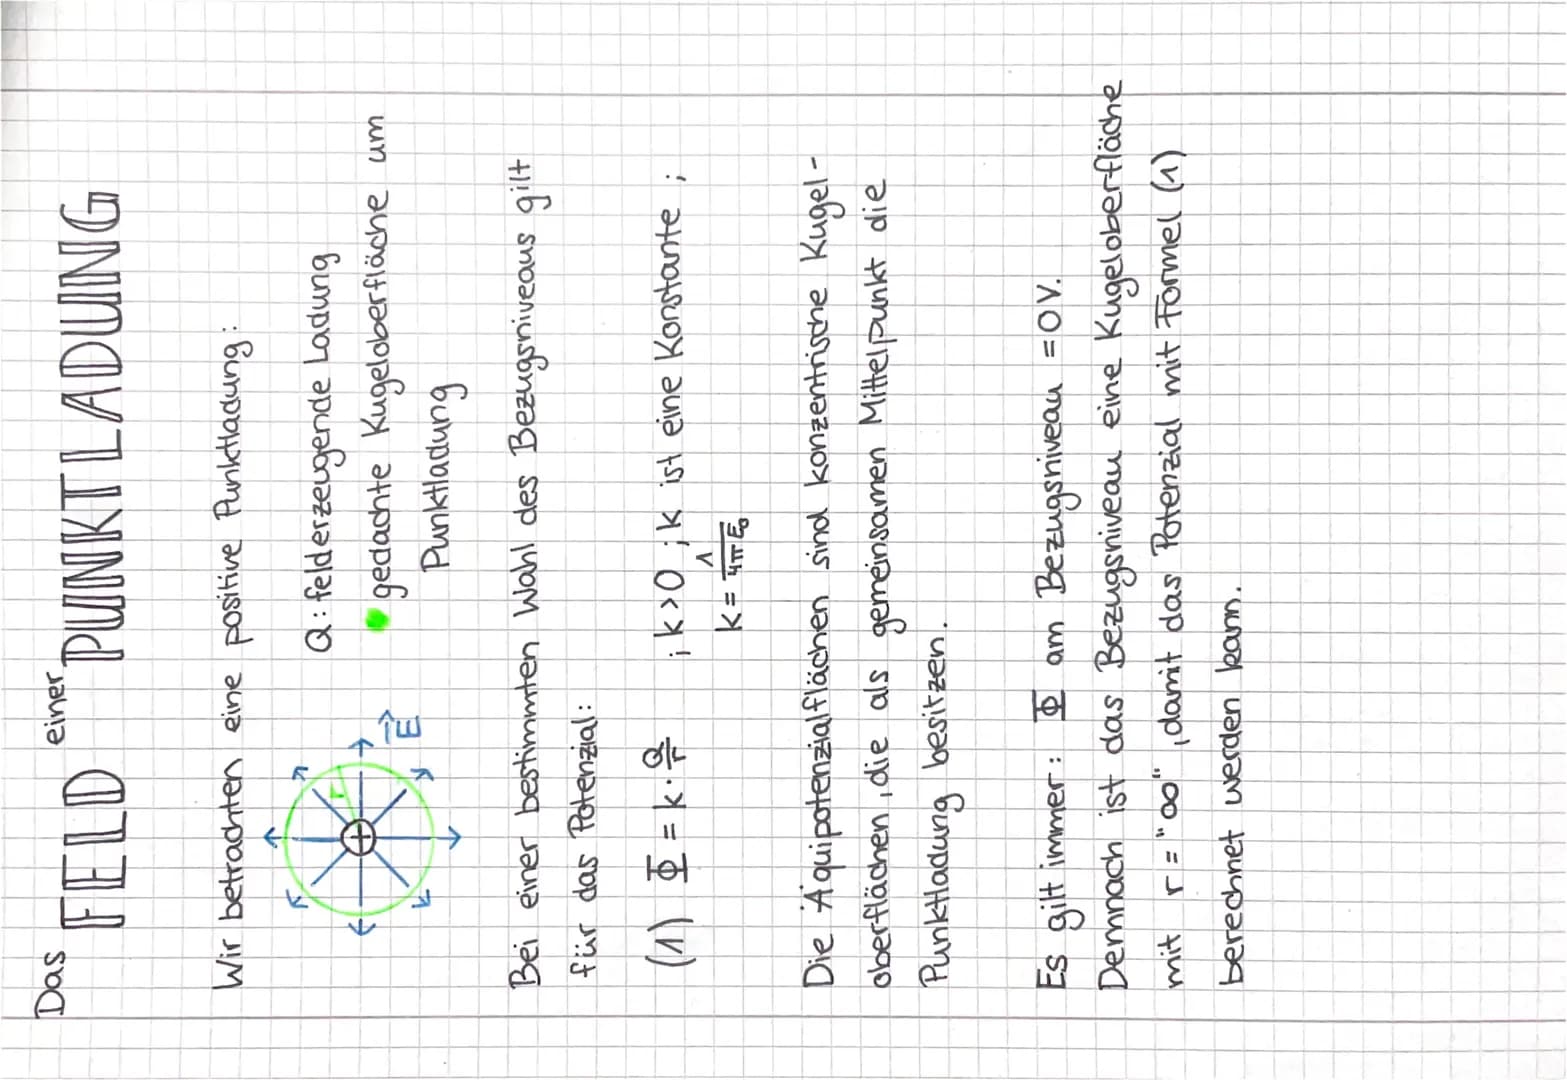 Das FELD einer PUNKTLADUNG
Wir betrachten eine positive Punktladung:
Q: felderzeugende Ladung
gedachte Kugeloberfläche um
Punktladung
r
+
E⃗
Bei einer bestimmten Wahl des Bezugsniveaus gilt
für das Potenzial:
(1) Φ = k · Q/r ; k>0 ; k ist eine Konstante ;
k = 1/(4πε₀)
Die Äquipotenzialflächen sind konzentrische Kugel-
oberflächen, die als gemeinsamen Mittelpunkt die
Punktladung besitzen.
Es gilt immer: Φ am Bezugsniveau = 0 V.
Demnach ist das Bezugsniveau eine Kugeloberfläche
mit r = "∞", damit das Potenzial mit Formel (1)
berechnet werden kann.